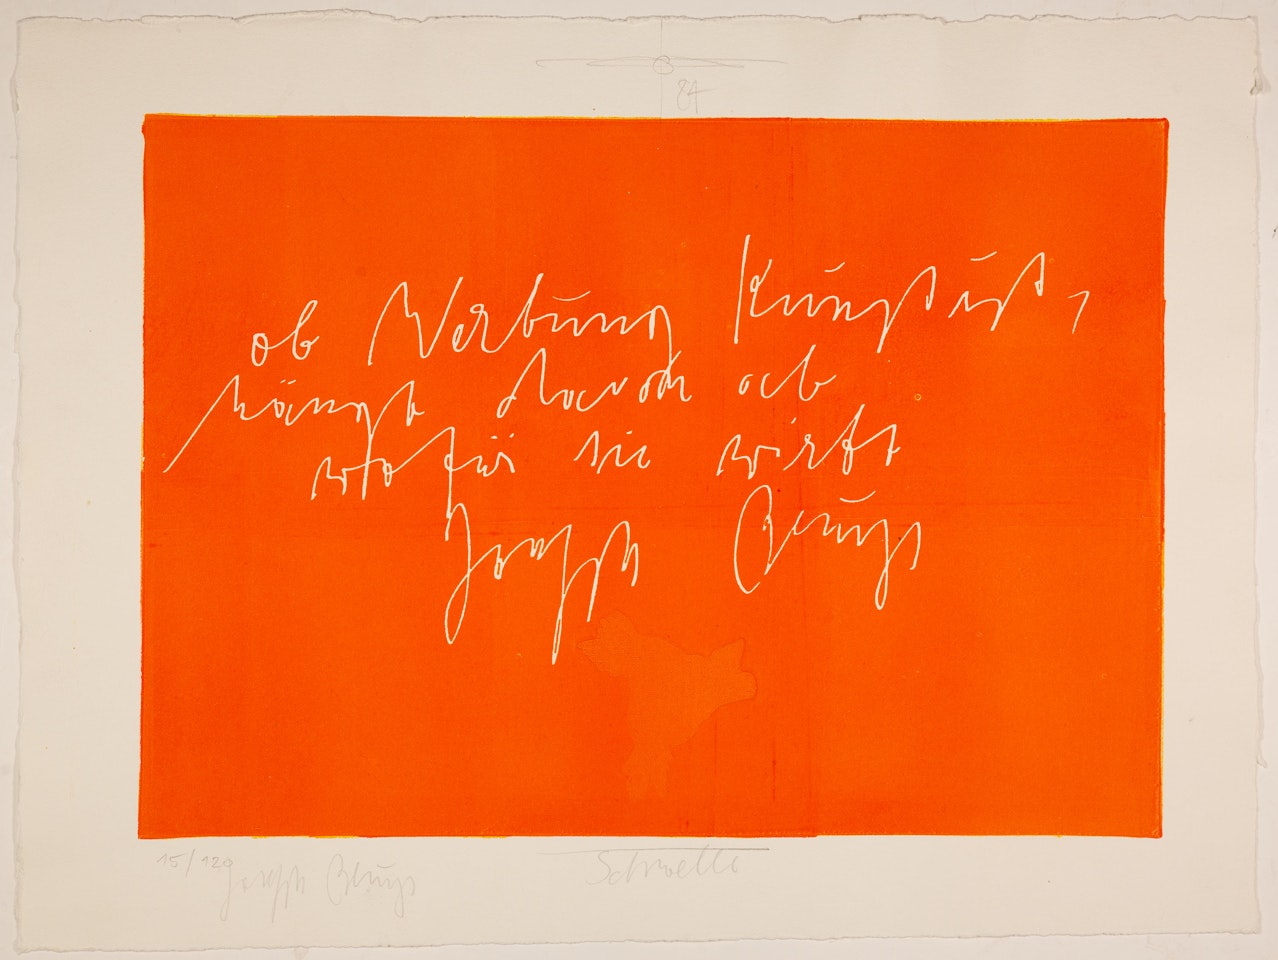 84
ob Werbung Kunst ist,
hängt davon ab
wofür sie wirbt
Joseph Beuys
15/120 Joseph Beuys Schwelle